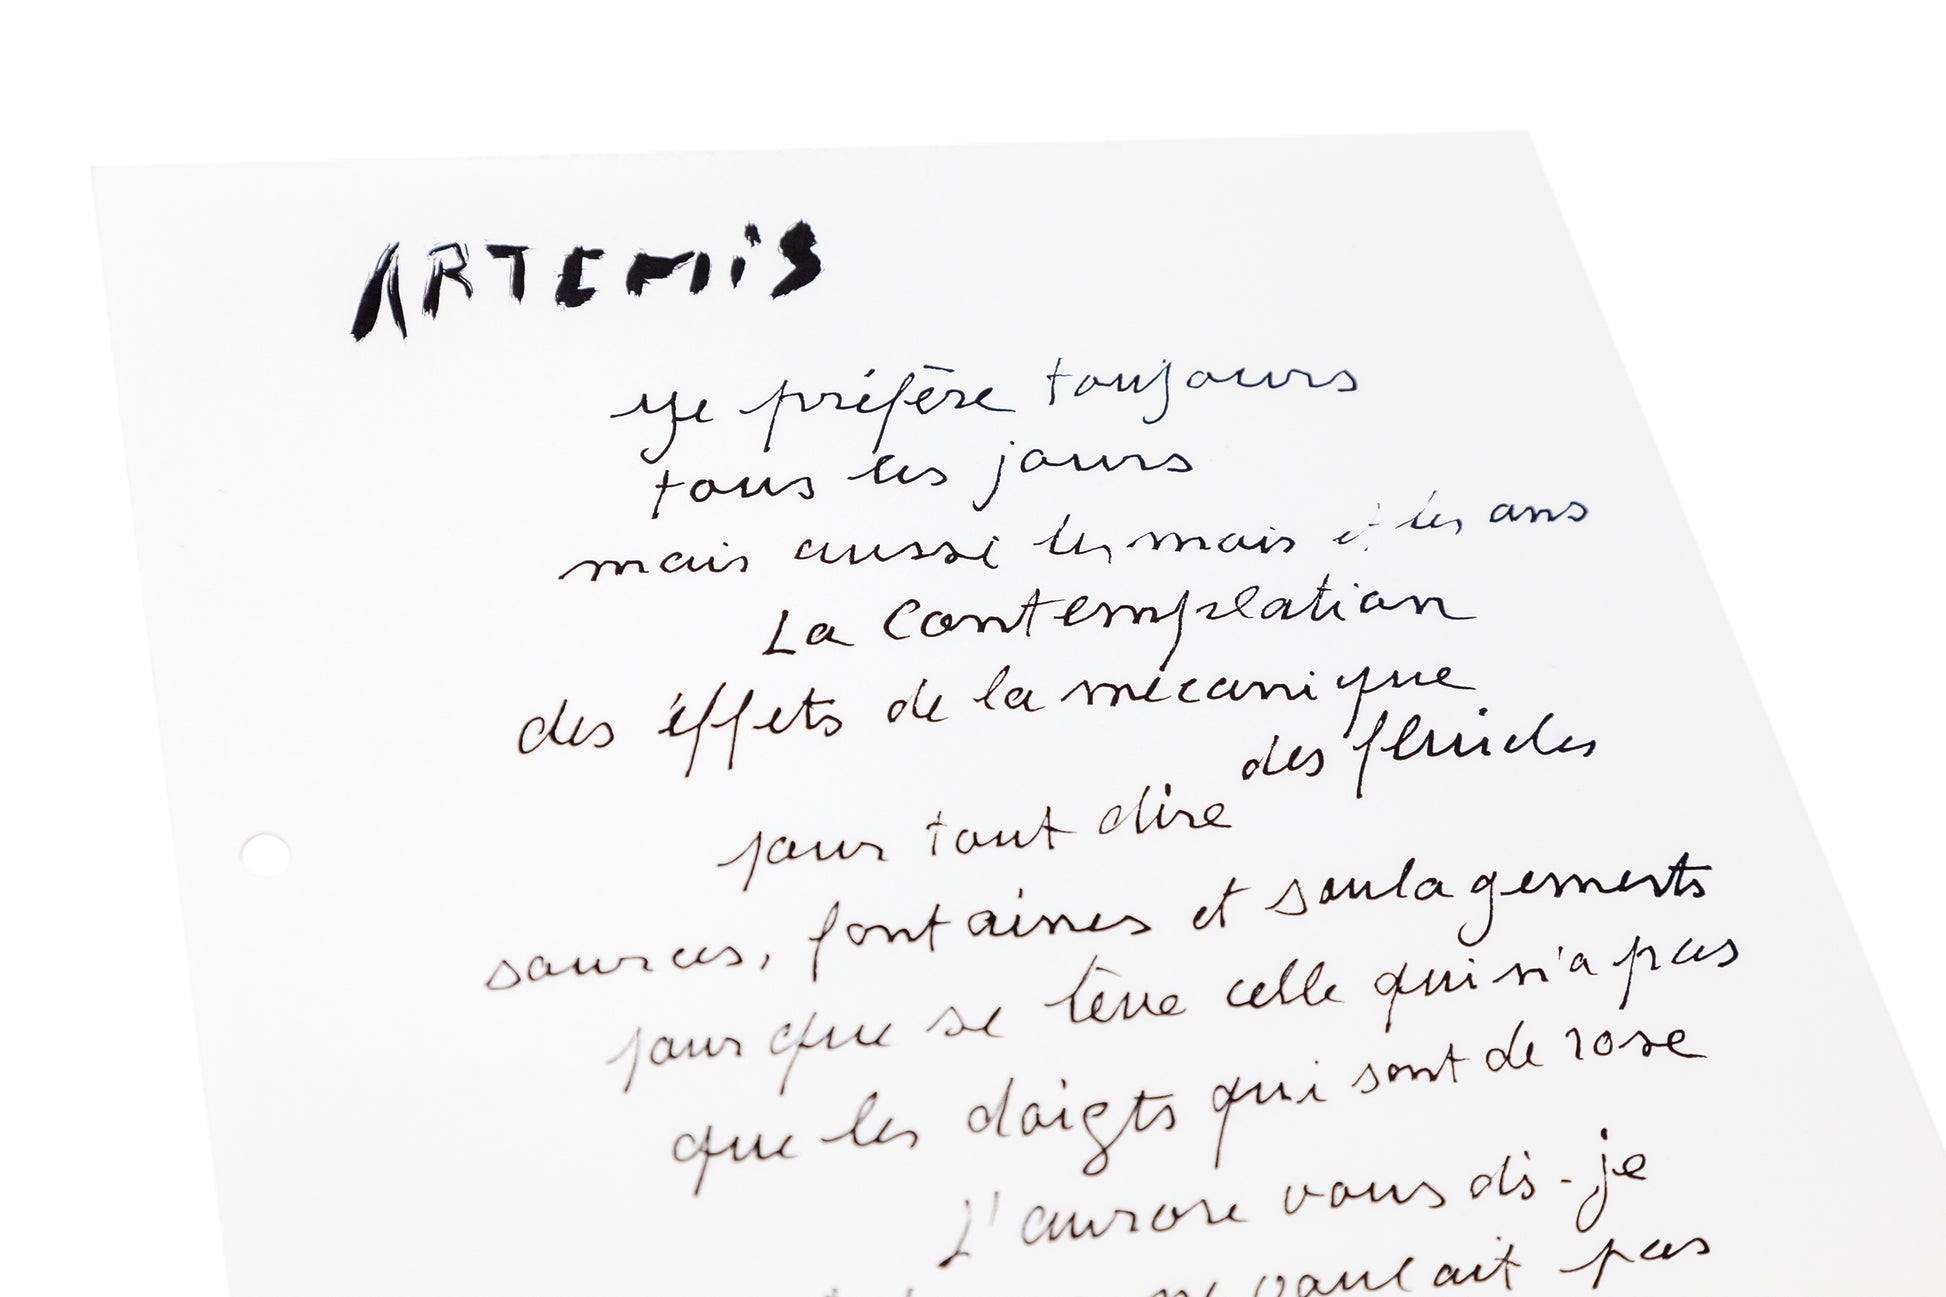 ARTEMiS
Je préfère toujours
tous les jours
mais aussi les mois et les ans
La contemplation
des éffets de la mécanique
des fluides
pour tout dire
sources, fontaines et soulagements
pour que se lève celle qui n'a pas
que les doigts qui sont de rose
L'aurore vous dis-je
ne voulait pas